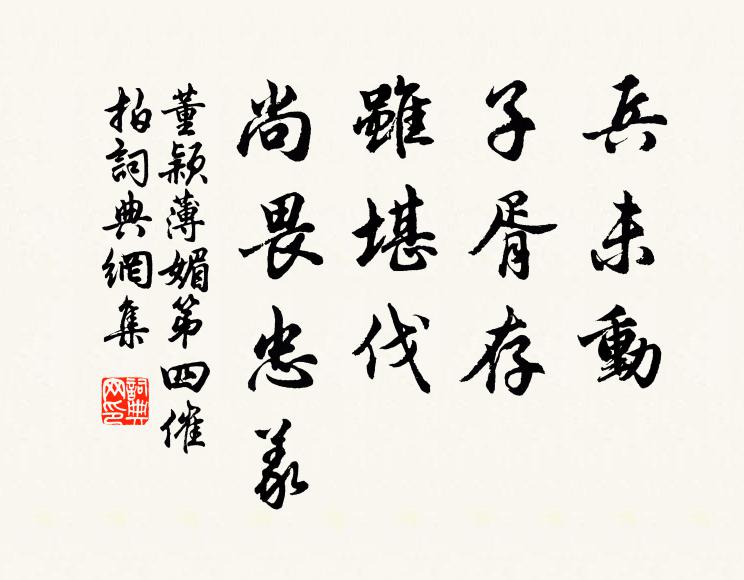 兵未動
子胥存
雖堪伐
尚畏忠義
董穎薄媚第四催
拍詞典網集
詞典网印